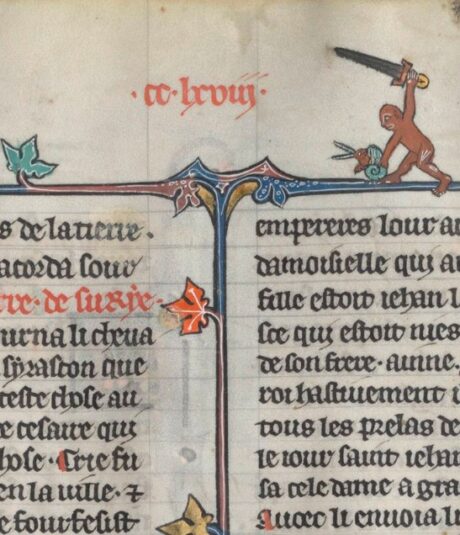 ·cc·lxviij·
s de la tierre.
acorda sour
rre·de surye·
ourna li cheua
syraston que
ceste chose au
e cesaire qui
hose·Crie fu
en la uille·⁊
e fourfesist
empereres lour a
damoiselle qui a
fille estoit iehan l
sce qui estoit nies
de son frere·ainne.
roi hastiuement
tous les prelas de
le iour saint iehan
sa cele dame a gra
Auec li enuoia l